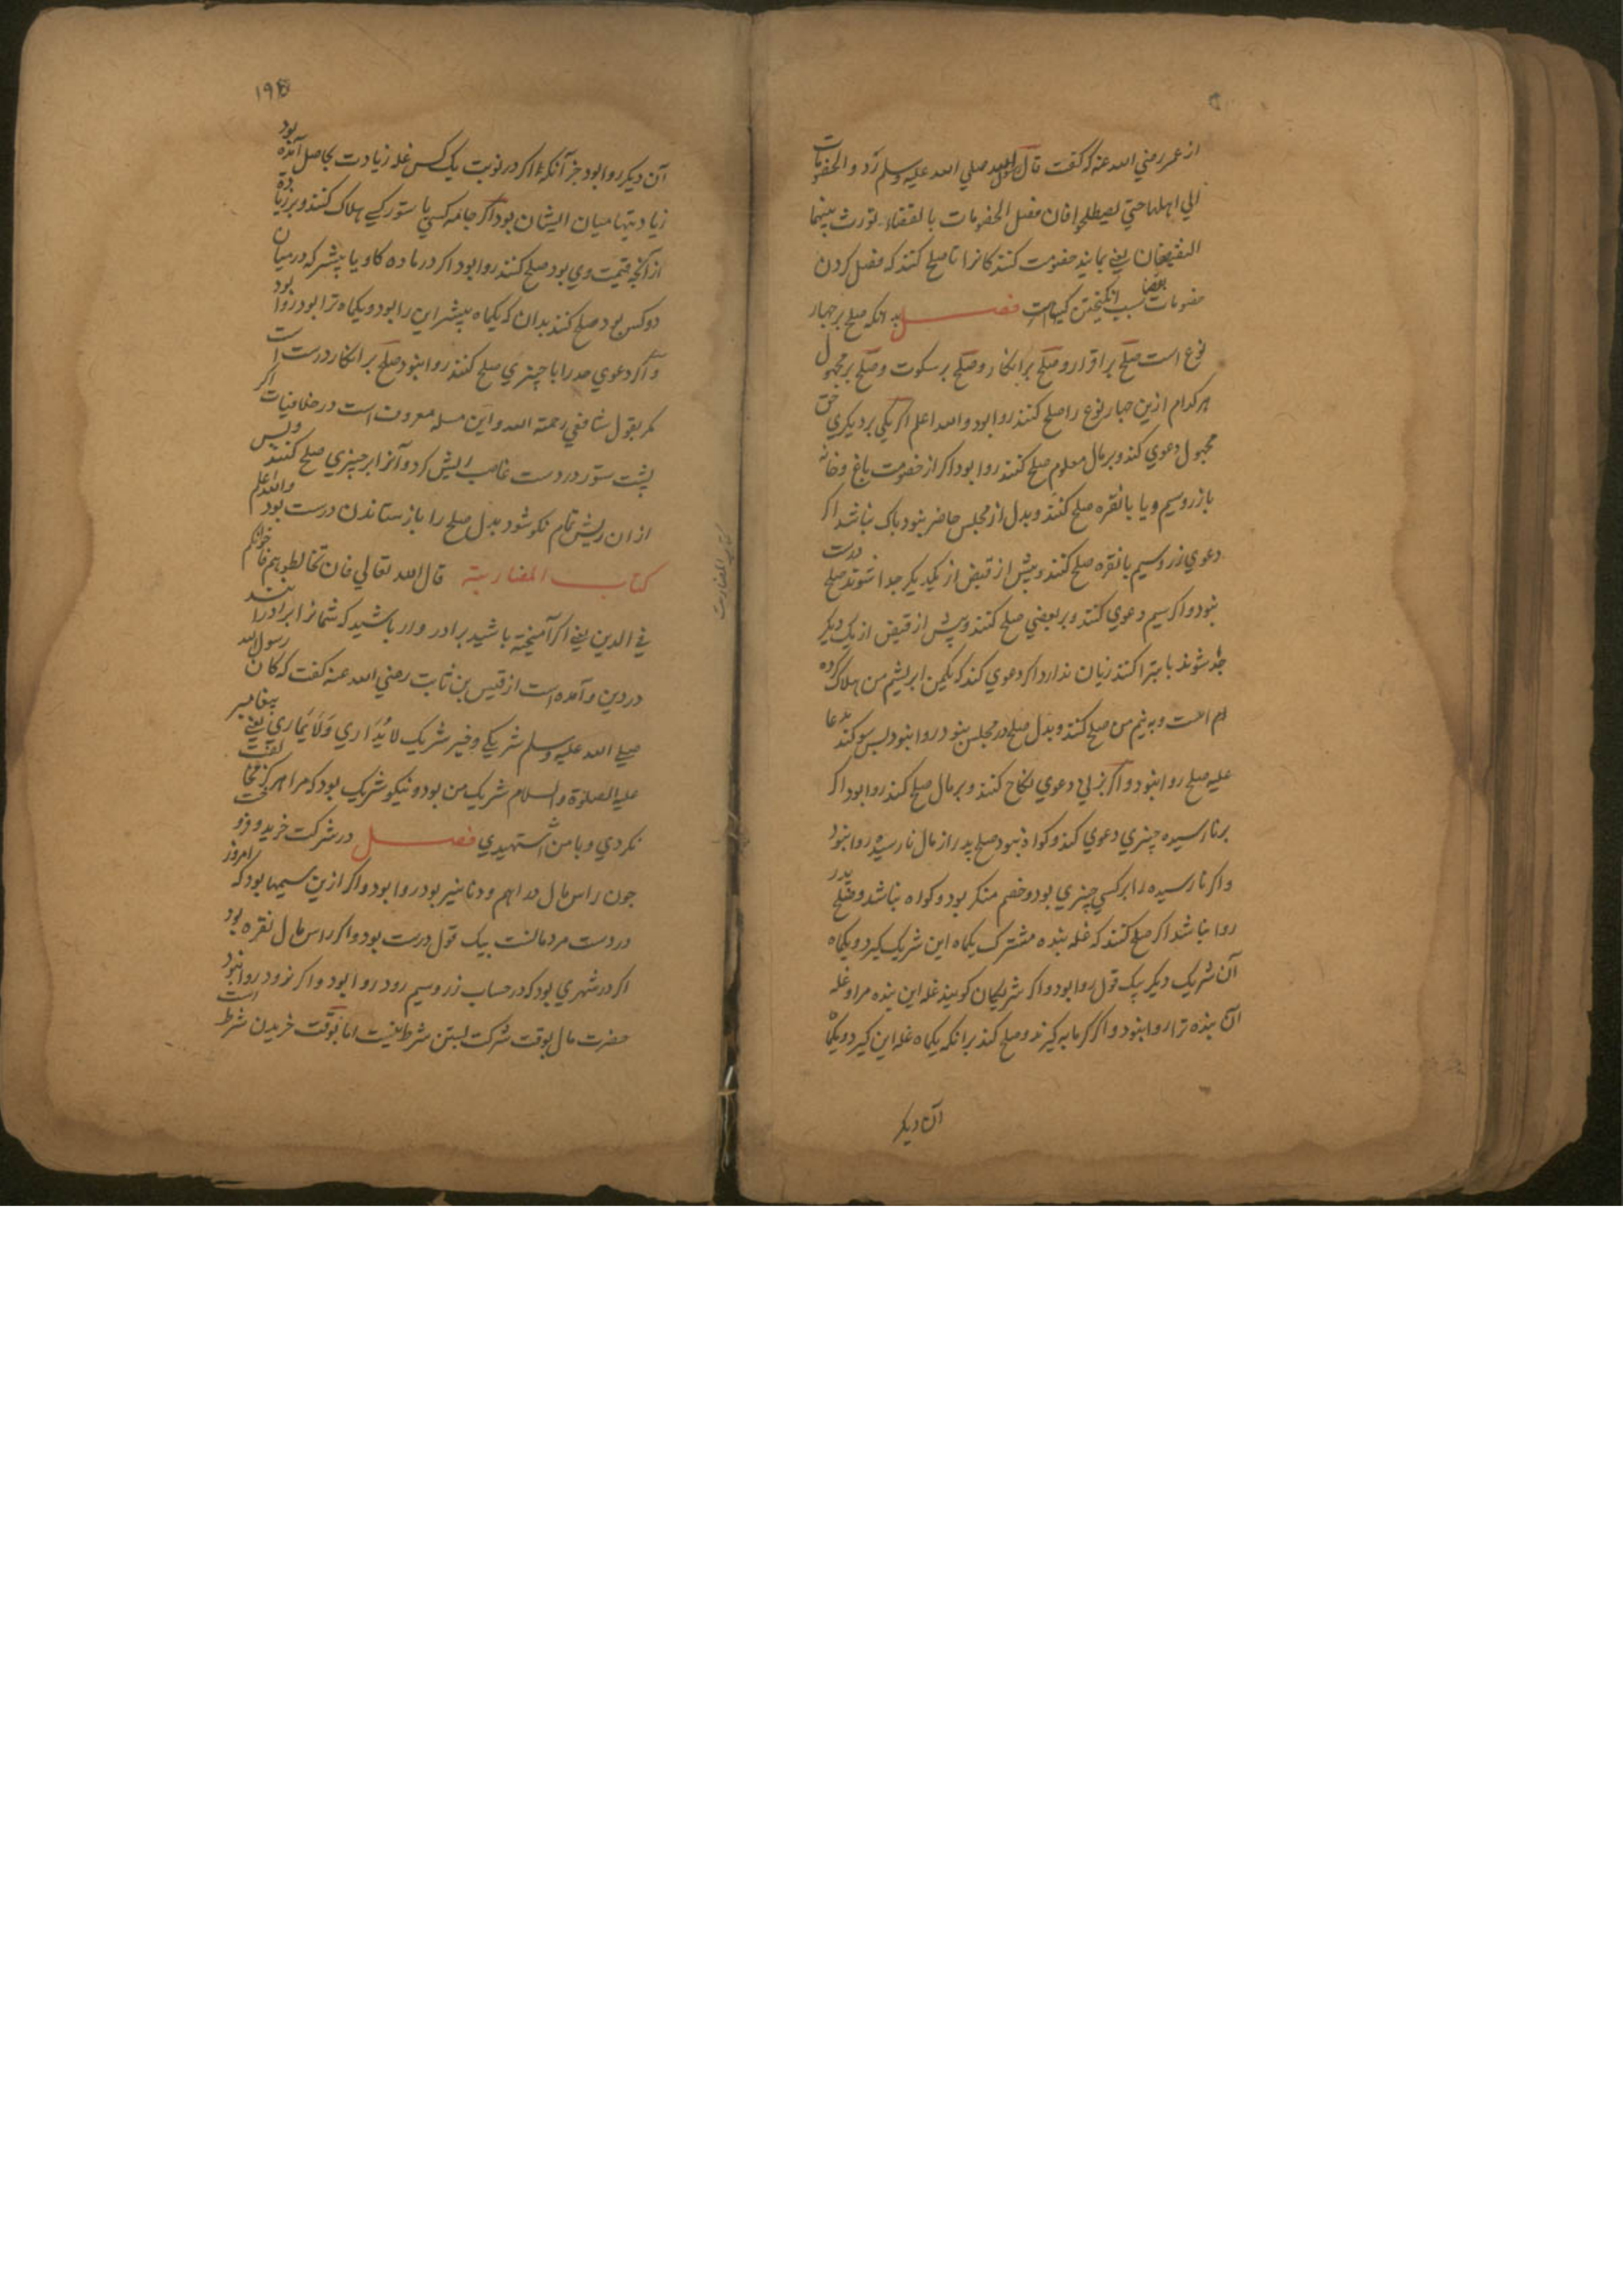 از عمر رضي الله عنه كه گفت قال رسول الله صلي الله عليه وسلم ردوالخصومات
الي اهلها حتي يصطلحوا فان فصل الخصومات بالقضاء تورث بينهما
الضغان يعني بمانيد خصومت كنندكانرا تا صلح كنند كه فصل كردن
خصومات بقضا سبب انكيختن كينهاست فصل بدانكه صلح بر چهار
نوع است صلح بر اقرار و صلح بر انكار و صلح بر سكوت و صلح بر مجهول
هر كدام ازين چهار نوع را صلح كنند روا بود والله اعلم اكر يكي بر ديكري حق
مجهول دعوي كند و بر مال معلوم صلح كنند روا بود اكر از خصومت باغ و خانه
بازر و سيم و يا با نقره صلح كنند و بدل از مجلس حاضر نبود باك نباشد اكر
دعوي زر و سيم با نقره صلح كنند و پيش از قبض از يكديكر جدا شوند صلح درست
نبود و اكر سيم دعوي كنند و بر بعضي صلح كنند و پيش از قبض از يك ديكر
جدا شوند يا متبرا كنند زيان ندارد اكر دعوي كند كه يكمن ابريشم من هلاك كرده
است و به نيم من صلح كنند و بدل صلح در مجلس نبود روا نبود پس سوكند مدعا
عليه صلح روا نبود و اكر بزني دعوي نكاح كنند و بر مال صلح كنند روا بود اكر
بر نارسيده چيزي دعوي كند و كواه نبود صلح پدر از مال نارسيده روا نبود
و اكر نارسيده را بر كسي چيزي بود و خصم منكر بود و كواه نباشد و صلح پدر
روا نباشد اكر صلح كنند كه غله بنده مشترك يكماه اين شريك كيرد و يكماه
آن شريك ديكر بيك قول روا بود و اكر شريكان كويند غله اين بنده مرا و غله
آن بنده ترا روا نبود و اكر كرمابه كيرند و صلح كنند برانكه يكماه غله اين كيرد و يكماه
آن ديكر
۱۹۴
آن ديكر روا بود جز آنكه اكر در نوبت يك كس غله زيادت بحاصل آمده بود
زيادتيها ميان ايشان بود اكر جامه كسي يا ستور كسي هلاك كنند و بر زياده
از آنچه قيمت وي بود صلح كنند روا بود اكر در ماده كاو يا بيشتر كه در ميان
دو كس بود صلح كنند بدان كه يكماه بيشتر اين را بود و يكماه ترا بود روا بود
و اكر دعوي حد را با چيزي صلح كنند روا نبود صلح بر انكار درست است
مكر بقول شافعي رحمة الله و اين مسله معروف است در خلافيات اكر
پشت ستور در دست غاصب ريش كرد و آنرا بر چيزي صلح كنند و پس
از ان ريش تمام نكو شود بدل صلح را باز ستاندن درست بود والله اعلم
كتاب المضاربة قال الله تعالي فان تخالطوهم فاخوانكم
في الدين يعني اكر آميخته باشيد برادر وار باشيد كه شمانرا برادرانند
در دين و آمده است از قيس بن ثابت رضي الله عنه كفت كه كان رسول الله
صلي الله عليه وسلم شريكي و خير شريك لا يداري ولا يماري يعني پيغامبر
عليه الصلوة والسلام شريك من بود و نيكو شريك بود كه مرا هركز مخالفت
نكردي و با من نستهيدي فصل در شركت خريد و فروخت
چون راس مال دراهم و دنانير بود روا بود و اكر ازين سيمها بود كه امروز
در دست مردمانست بيك قول درست بود و اكر راس مال نقره بود
اكر در شهري بود كه در حساب زر و سيم رود روا بود و اكر نرود روا نبود
حضرت مال بوقت شركت بستن شرط نيست اما بوقت خريدن شرط است
كتاب المضاربت